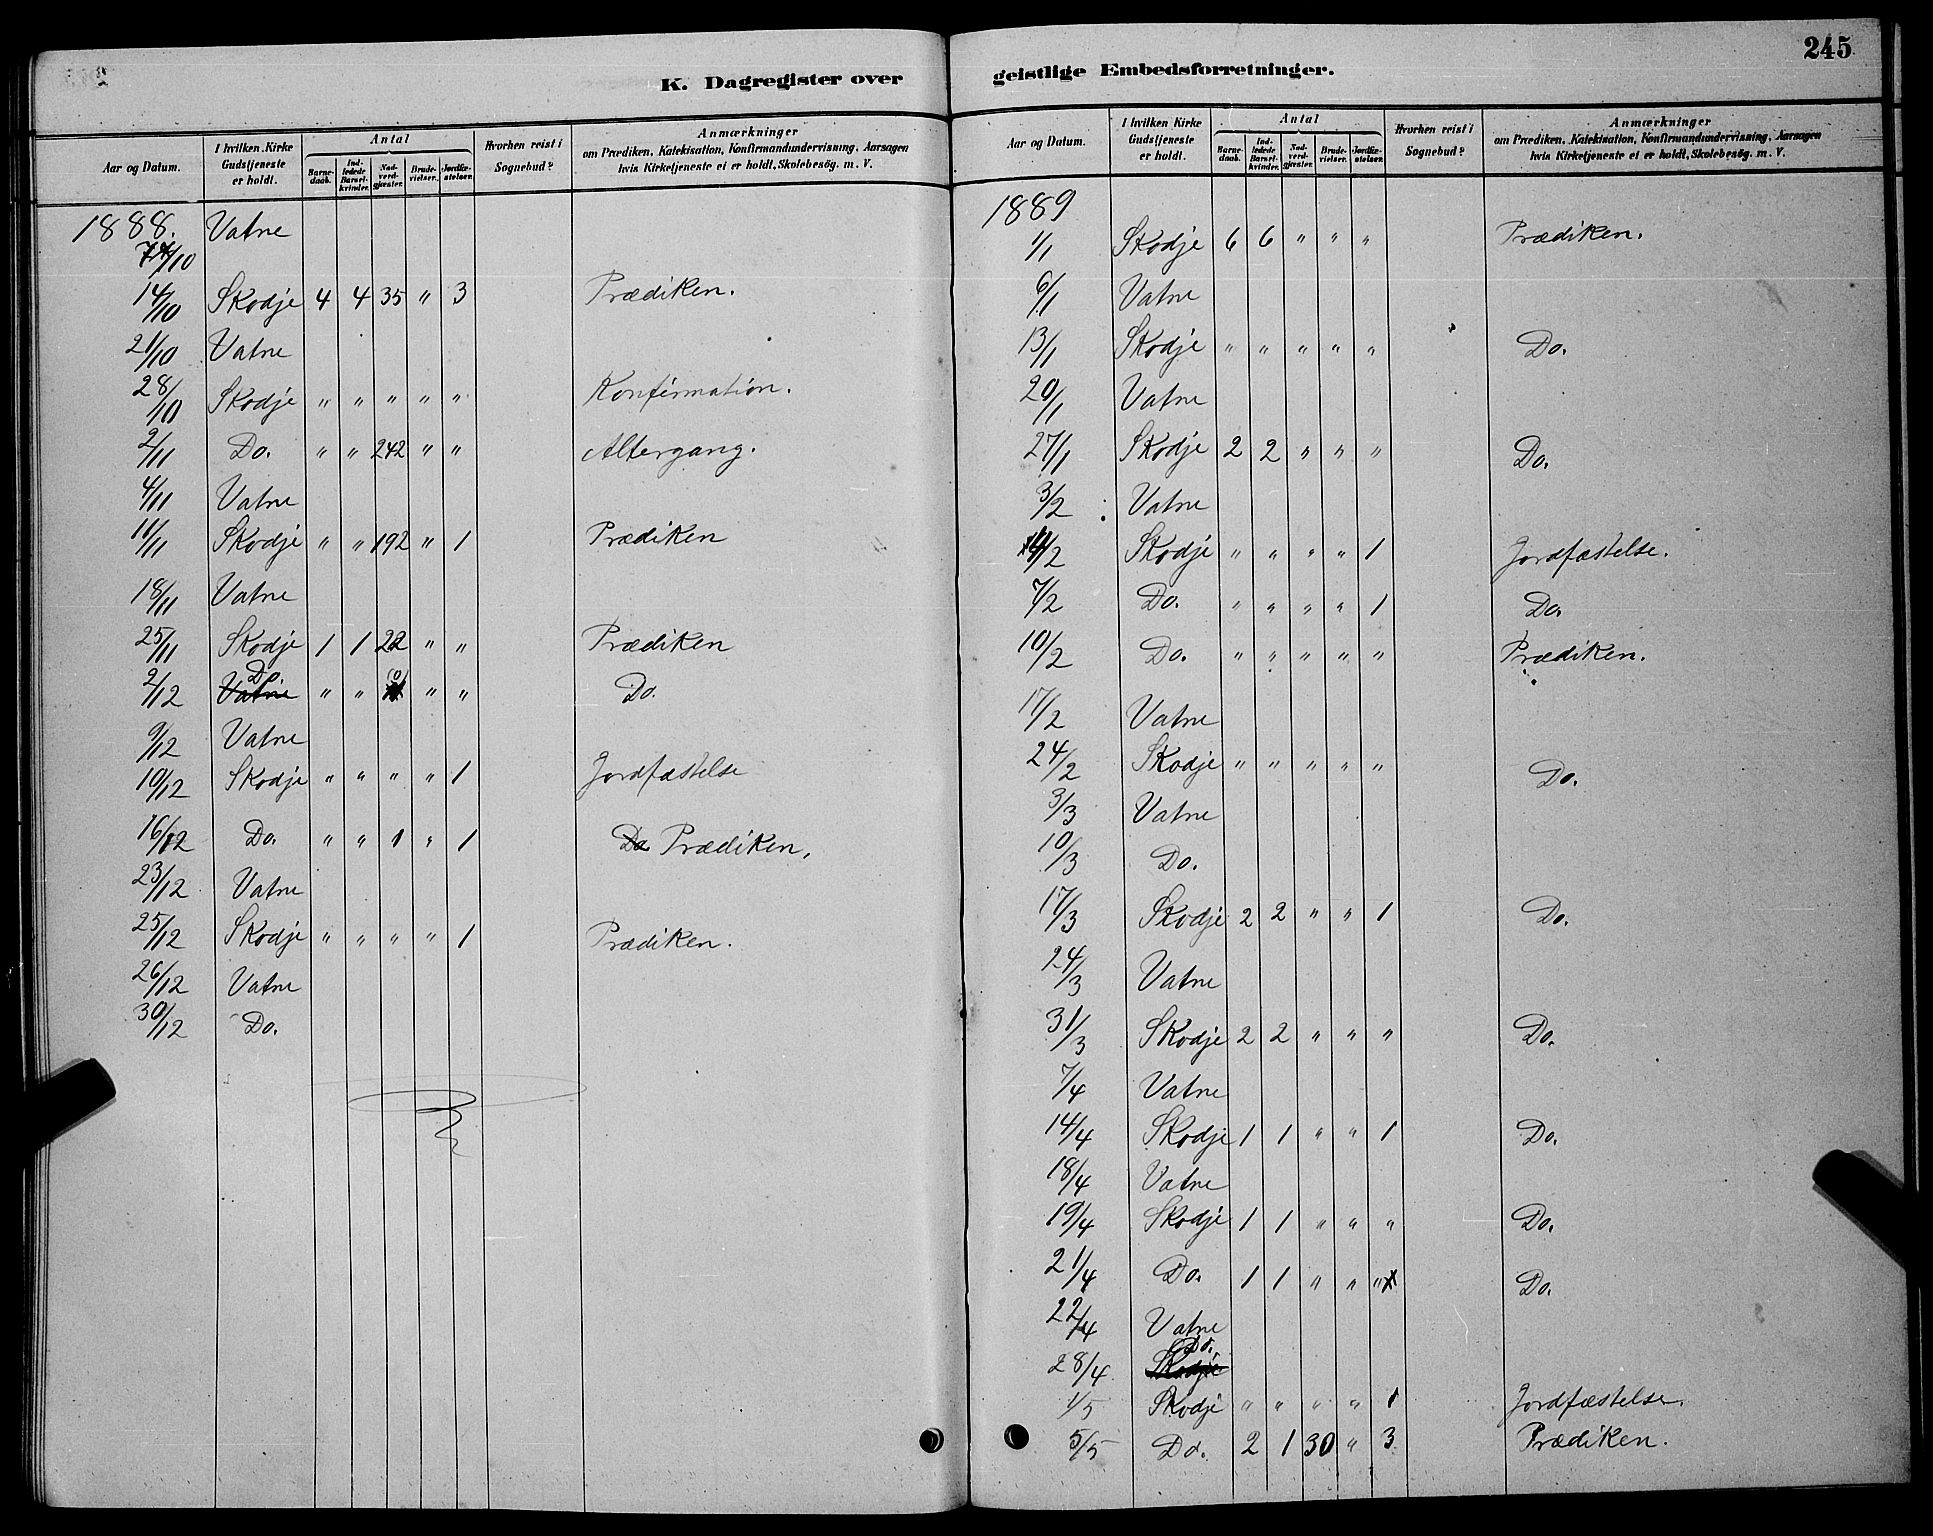 K. Dagregister over
Aar og Datum. I hvilken Kirke Gudstjeneste er holdt. Antal Barnedaab. Indledede Barselkvinder. Nadverdgjæster. Brudevielser. Jordfæstelser. Hvorhen reist i Sognebud? Anmærkninger om Prædiken, Katekisation, Konfirmandundervisning, Aarsagen hvis Kirketjeneste ei er holdt, Skolebesög. m. V.
1888. Vatne
/10
14/10 Skodje 4 4 35 " 3 Prædiken.
21/10 Vatne
28/10 Skodje " " " " " Konfirmation.
2/11 Do. " " 242 " " Altergang.
4/11 Vatne
11/11 Skodje " " 192 " 1 Prædiken
18/11 Vatne
25/11 Skodje 1 1 22 " " Prædiken
2/12 Vatne Do. " " " " Do.
9/12 Vatne
10/12 Skodje " " " " 1 Jordfæstelse
16/12 Do. " " 1 " 1 Do Prædiken.
23/12 Vatne
25/12 Skodje " " " " 1 Prædiken.
26/12 Vatne
30/12 Do.
geistlige Embedsforretninger.
245
Aar og Datum. I hvilken Kirke Gudstjeneste er holdt. Antal Barnedaab. Indledede Barselkvinder. Nadverdgjæster. Brudevielser. Jordfæstelser. Hvorhen reist i Sognebud? Anmærkninger om Prædiken, Katekisation, Konfirmandundervisning, Aarsagen hvis Kirketjeneste ei er holdt, Skolebesög. m. V.
1889
1/1 Skodje 6 6 " " " Prædiken.
6/1 Vatne
13/1 Skodje " " " " " Do.
20/1 Vatne
27/1 Skodje 2 2 " " " Do.
3/2 Vatne
/2 Skodje " " " " 1 Jordfæstelse.
7/2 Do. " " " " 1 Do.
10/2 Do. " " " " " Prædiken.
17/2 Vatne
24/2 Skodje " " " " " Do.
3/3 Vatne
10/3 Do.
17/3 Skodje 2 2 " " 1 Do.
24/3 Vatne
31/3 Skodje 2 2 " " " Do.
7/4 Vatne
14/4 Skodje 1 1 " " 1 Do.
18/4 Vatne
19/4 Skodje 1 1 " " " Do.
21/4 Do. 1 1 " " " Do.
22/4 Vatne
28/4 Skodje Do.
1/5 Skodje " " " " 1 Jordfæstelse.
5/5 Do. 2 1 30 " 3 Prædiken.